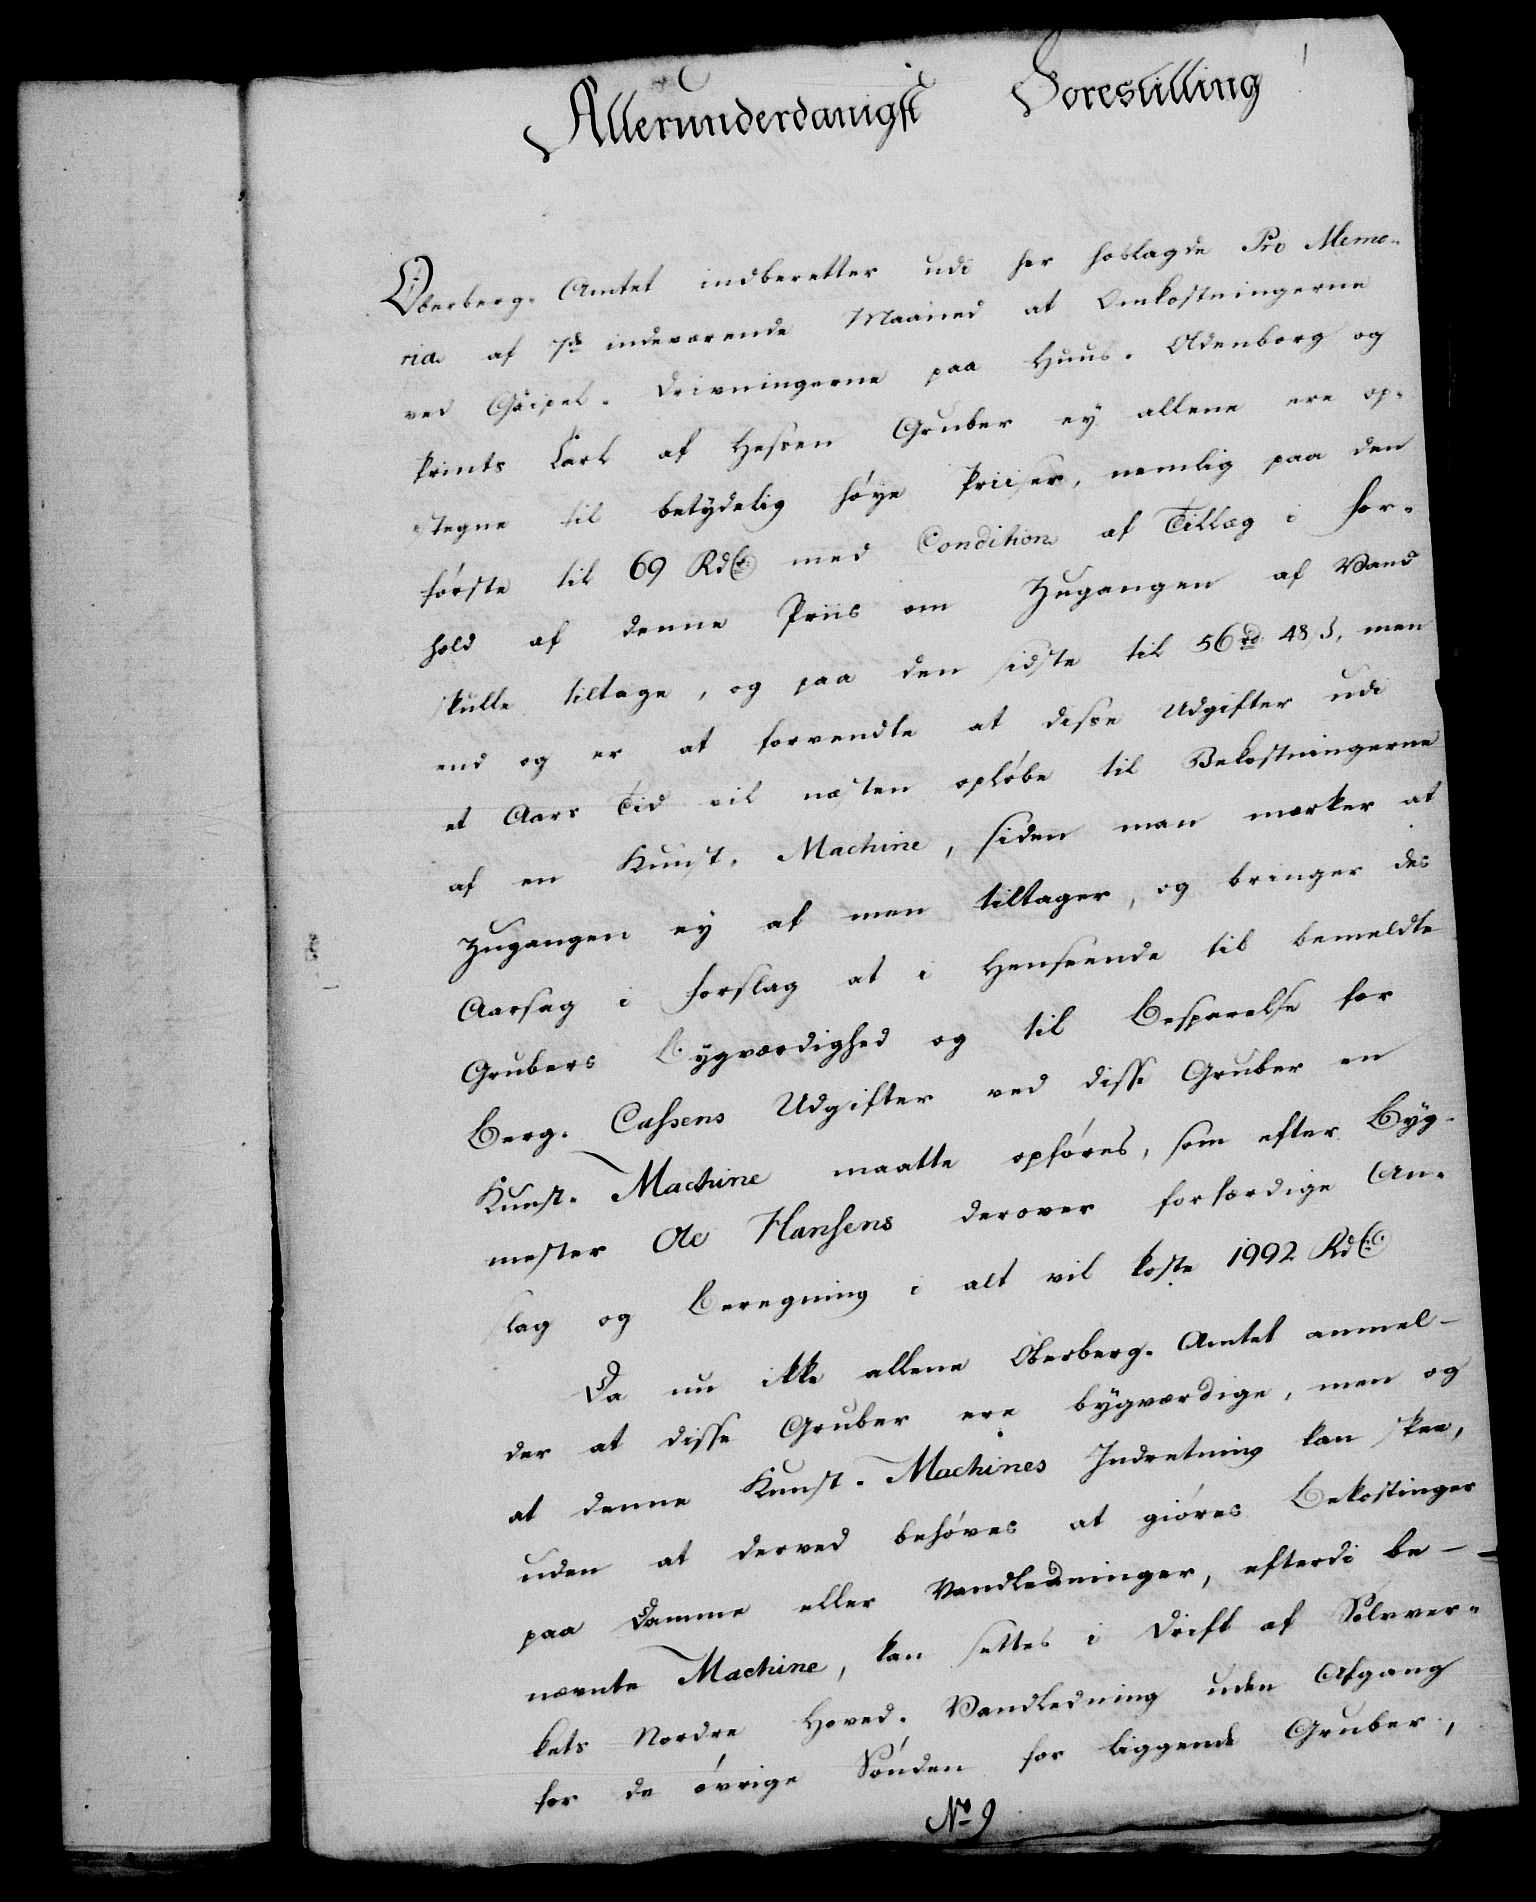 Allerunderdanigst Forestilling
Oberberg-Amtet indberetter udi her hoslagde Pro Memo-
ria af 7de indeværende Maaned at Omkostningerne
ved Göipel-Drivningerne paa Huus-Oldenborg og
Prints Carl af Hessen Gruber ey allene ere op-
stegne til betydelig høye Priiser, nemlig paa den
første til 69 Rdlr med Condition af Tillæg i For-
hold af denne Priis om Zugangen af Vand
skulle tiltage, og paa den sidste til 56 rd 48 s, men
end og er at forvendte at disse Udgifter udi
et Aars Tid vil næsten opløbe til Bekostningerne
af en Kunst-Machine, siden man mærker at
Zugangen ey af men tiltager, og bringer des
Aarsag i Forslag at i Henseende til bemeldte
Grubers Bygværdighed og til Besparelse for
Berg-Cassens Udgifter ved disse Gruber en
Kunst-Machine maatte opføres, som efter Byg-
mester Ole Hansens derover forfærdige An-
slag og Beregning i alt vil koste 1992 Rdlr
Da nu ikke allene Oberberg-Amtet anmel-
der at disse Gruber ere bygværdige, men og
at denne Kunst-Machines Indretning kan skee,
uden at derved behøves at giøres Bekostinger
paa Damme eller Vandledninger, efterdi be-
nævnte Machine, kan settes i Drift af Sølvver-
kets Nordre Hoved-Vandledning uden Afgang
for de øvrige Sønden for liggende Gruber,
No 9